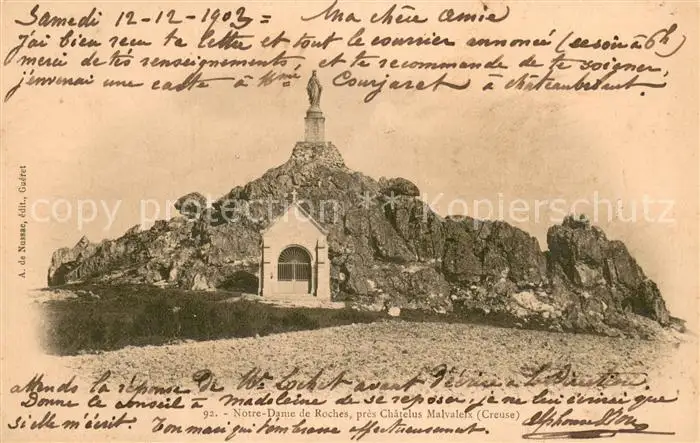 Samedi 12-12-1903 = Ma chère amie
j'ai bien reçu ta lettre et tout le courrier annoncé (ce soir à 6h)
merci de tes renseignements, et te recommande de te soigner,
j'enverrai une carte à Mme Courjaret à Chateaubriant
A. de Nussac, édit., Guéret
copyright Kipperschild
attends la réponse de Mr Lochet avant d'écrire à la Direction
Donne le conseil à Madeleine de se reposer, je ne lui écrirai que
92. - Notre-Dame de Roches, près Châtelus Malvaleix (Creuse)
si elle m'écrit Ton mari qui t'embrasse affectueusement. Alphonse